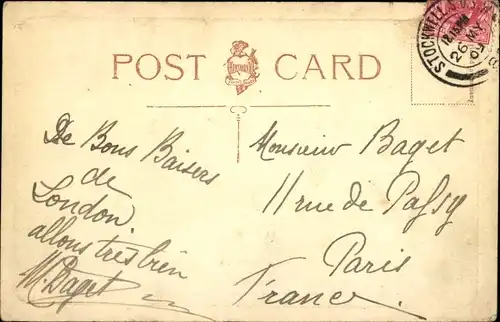 POST CARD
STOCKWELL
12.15 PM
26 MY
De Bons Baisers
de
London
allons très bien
M. Baget
Monsieur Baget
11 rue de Passy
Paris
France